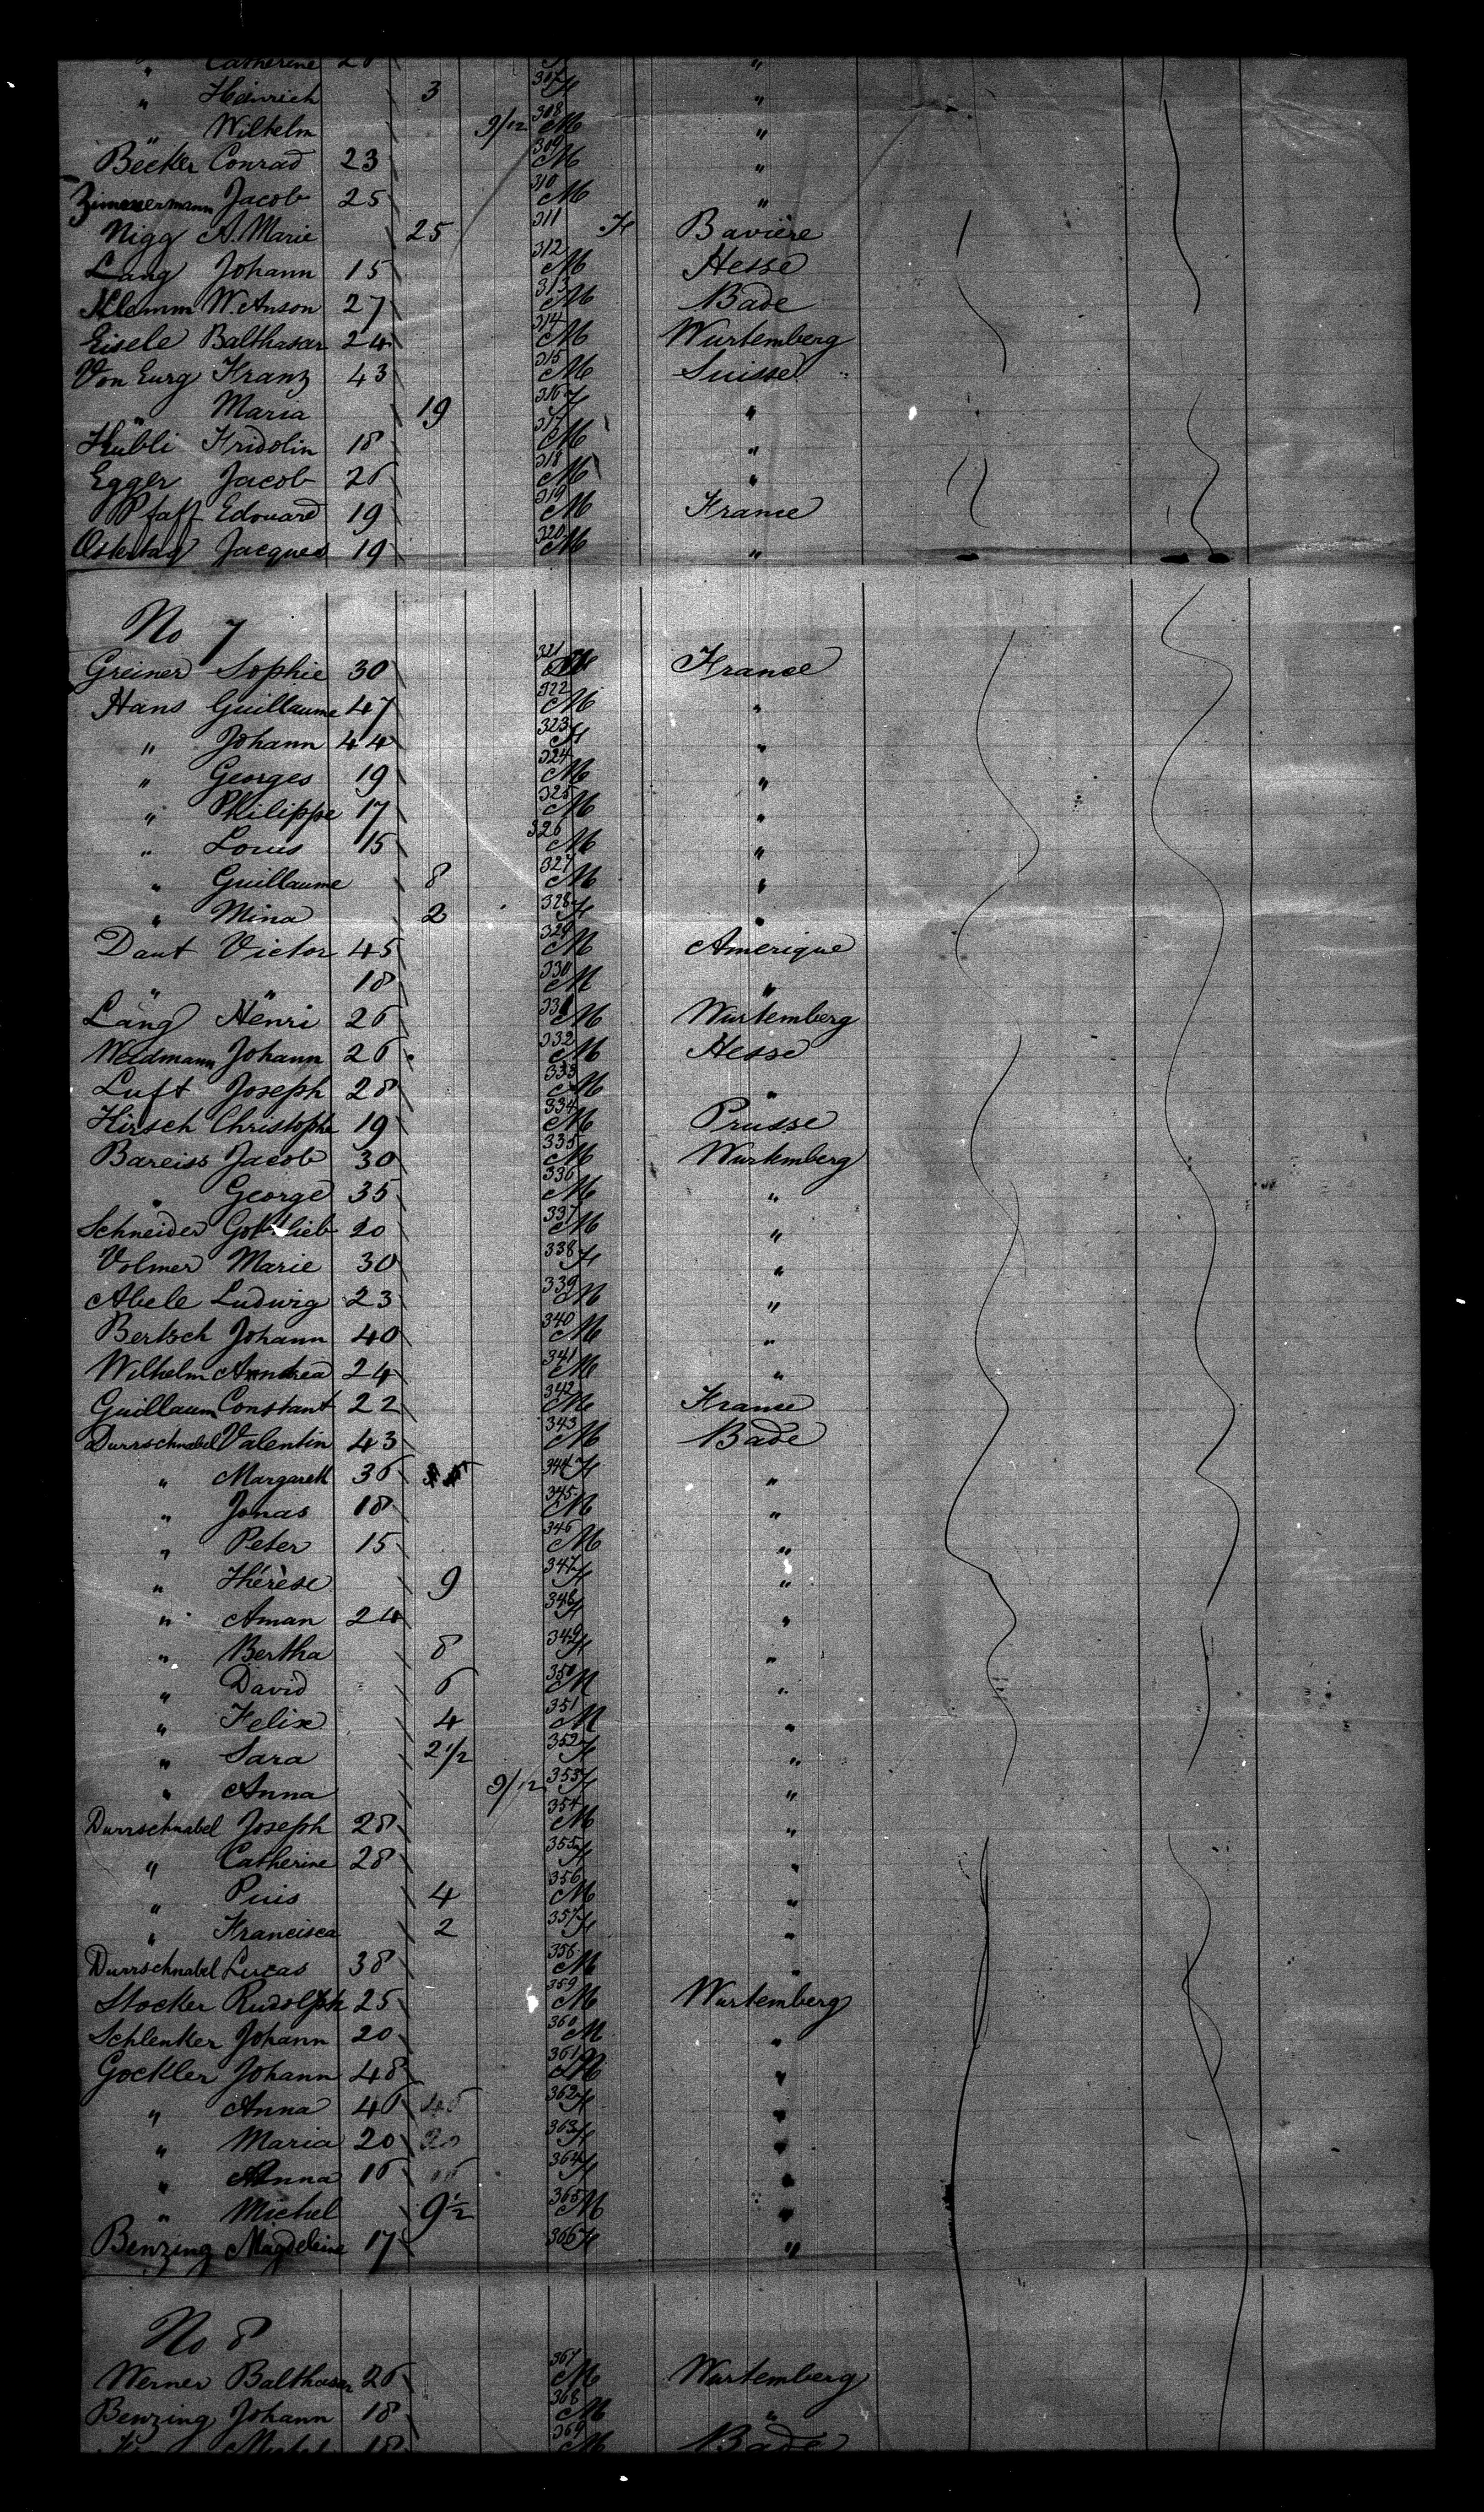 " Catherine 26 F "
" Heinrich 3 307 F "
" Wilhelm 9/12 308 M "
Becker Conrad 23 309 M "
Zimmermann Jacob 25 310 M "
Nigg A. Marie 25 311 F Bavière
Lang Johann 15 312 M Hesse
Klamm W. Anson 27 313 M Bade
Eisele Balthasar 24 314 M Wurtemberg
Von Eurg Franz 43 315 M Suisse
" Maria 19 316 F "
Hübli Fridolin 18 317 M "
Egger Jacob 26 318 M "
Pfaff Edouard 19 319 M France
Ostertag Jacques 19 320 M "
No 7
Greiner Sophie 30 321 F France
Hans Guillaume 47 322 M "
" Johann 44 323 F "
" Georges 19 324 M "
" Philippe 17 325 M "
" Louis 15 326 M "
" Guillaume 8 327 M "
" Mina 2 328 F "
Daut Victor 45 329 M Amerique
" " 18 330 M "
Lang Henri 26 331 M Wurtemberg
Weidmann Johann 26 332 M Hesse
Luft Joseph 28 333 M "
Hirsch Christophe 19 334 M Prusse
Bareiss Jacob 30 335 M Wurtemberg
" George 35 336 M "
Schneider Gottlieb 20 337 M "
Volmer Marie 30 338 F "
Abele Ludwig 23 339 M "
Bertsch Johann 40 340 M "
Wilhelm Andrea 24 341 M "
Guillaum Constant 22 342 M France
Durrschnabel Valentin 43 343 M Bade
" Margareth 36 344 F "
" Jonas 18 345 M "
" Peter 15 346 M "
" Thérèse 9 347 F "
" Aman 24 348 F "
" Bertha 8 349 F "
" David 6 350 M "
" Felix 4 351 M "
" Sara 2 1/2 352 F "
" Anna 9/12 353 F "
Durrschnabel Joseph 28 354 M "
" Catherine 28 355 F "
" Puis 4 356 M "
" Francisca 2 357 F "
Durrschnabel Lucas 38 358 M "
Stocker Rudolph 25 359 M Wurtemberg
Schlenker Johann 20 360 M "
Gockler Johann 48 361 M "
" Anna 46 46 362 F "
" Maria 20 20 363 F "
" Anna 16 16 364 F "
" Michel 9 1/2 365 M "
Benzing Magdeleine 17 366 F "
No 8
Werner Balthasar 26 367 M Wurtemberg
Benzing Johann 18 368 M "
Michel 18 369 M Bade